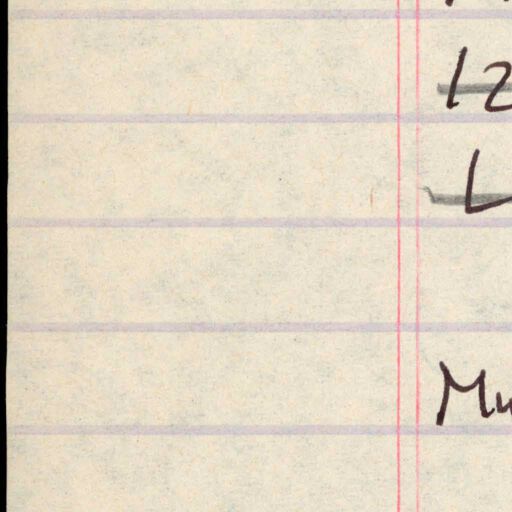 12
L
Mu